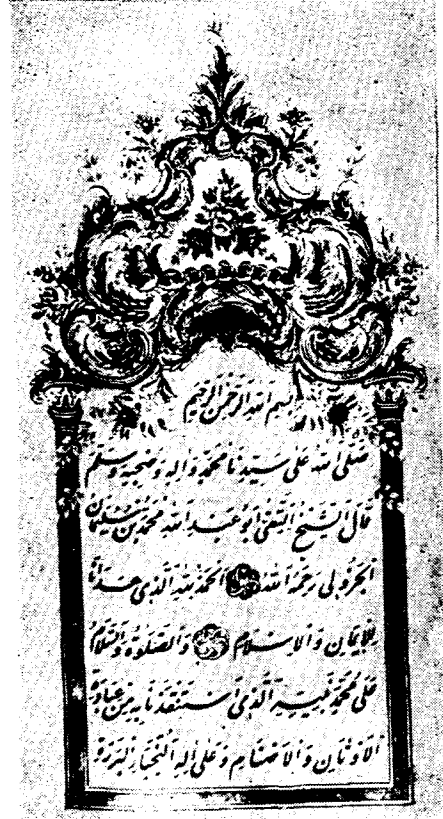 بسم الله الرحمن الرحيم
صلى الله على سيدنا محمد واله وصحبه وسلم
قال الشيخ التقى ابو عبد الله محمد بن سليمان
الجزولى رحمة الله الحمد لله الذى هدانا
للايمان والاسلام والصلوة والسلام
على محمد نبيه الذى استنقذنا به من عبادة
الاوثان والاصنام وعلى اله النجباء البررة